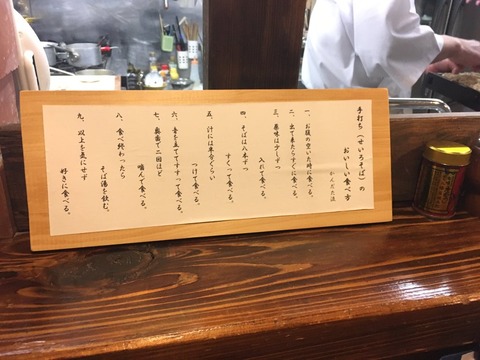 手打ち〈せいろそば〉の
おいしい食べ方
かんだた流
一、お腹の空いた時に食べる。
二、出て来たらすぐに食べる。
三、薬味は少しずつ
入れて食べる。
四、そばは八本ずつ
すくって食べる。
五、汁には半分ぐらい
つけて食べる。
六、音を立ててすすって食べる。
七、奥歯で二回ほど
噛んで食べる。
八、食べ終わったら
そば湯を飲む。
九、以上を気にせず
好きに食べる。